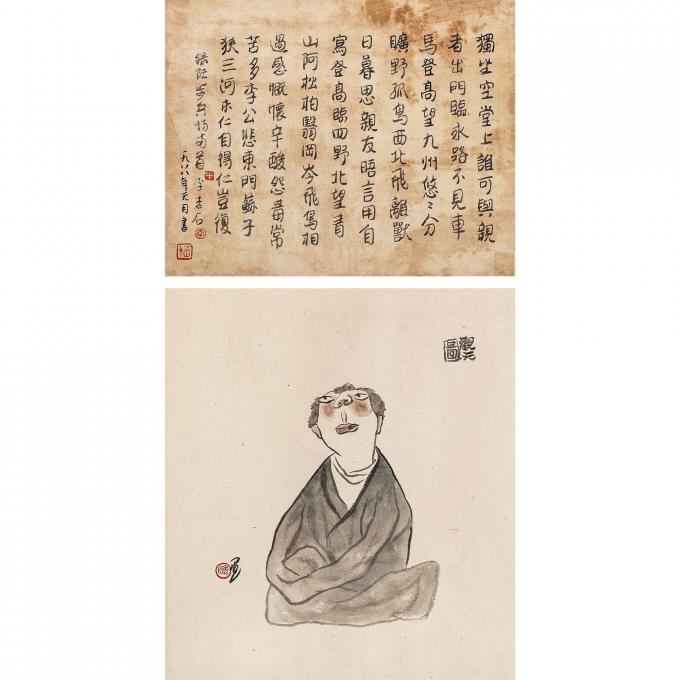 獨坐空堂上誰可與親
者出門臨永路不見車
馬登高望九州悠〻分
曠野孤鳥西北飛離獸
日暮思親友晤言用自
寫登高臨四野北望青
山阿松柏翳岡岑飛鳥相
過感慨懷辛酸怨毒常
苦多李公悲東門蘇子
狹三河求仁自得仁豈復
錄阮步兵詩兩首李老石
一九八八年元月書
觀天
圖